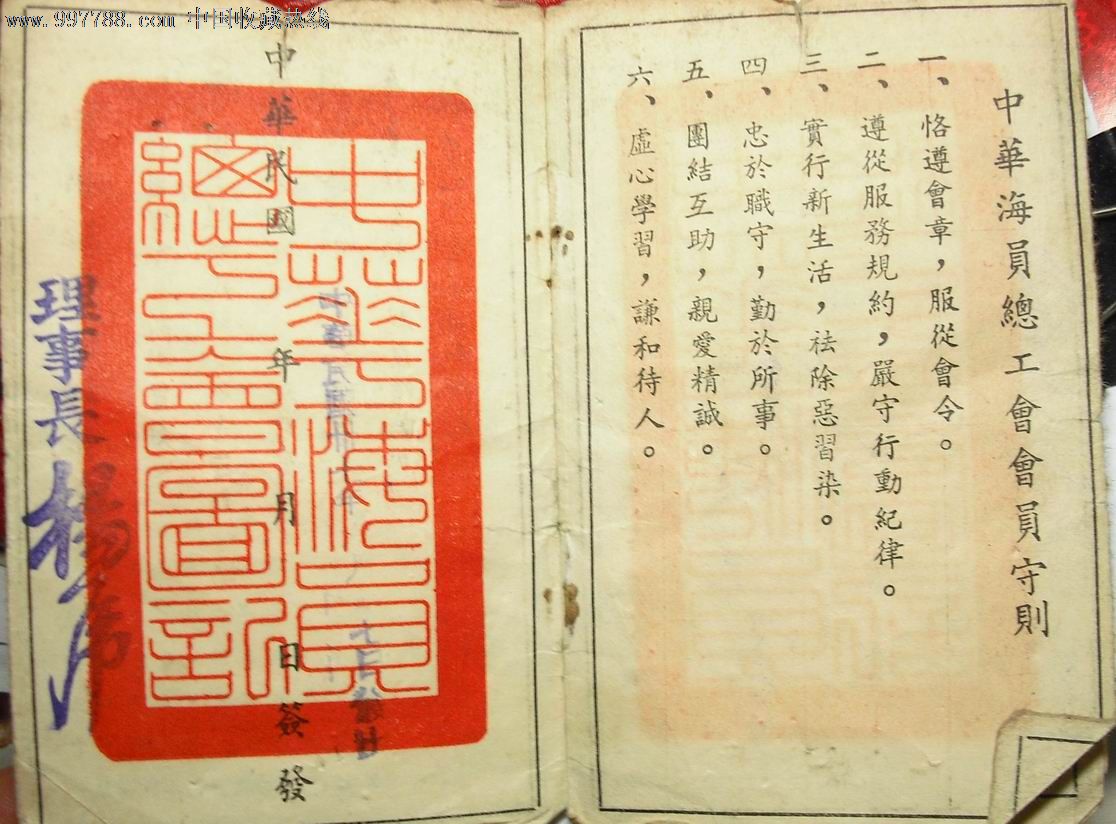 www.997788.com 中国收藏热线
中華海員總工會會員守則
一、恪遵會章，服從會令。
二、遵從服務規約，嚴守行動紀律。
三、實行新生活，祛除惡習染。
四、忠於職守，勤於所事。
五、團結互助，親愛精誠。
六、虛心學習，謙和待人。
中華民國 年 月 日簽發
中華海員
總工會圖記
理事長 楊虎